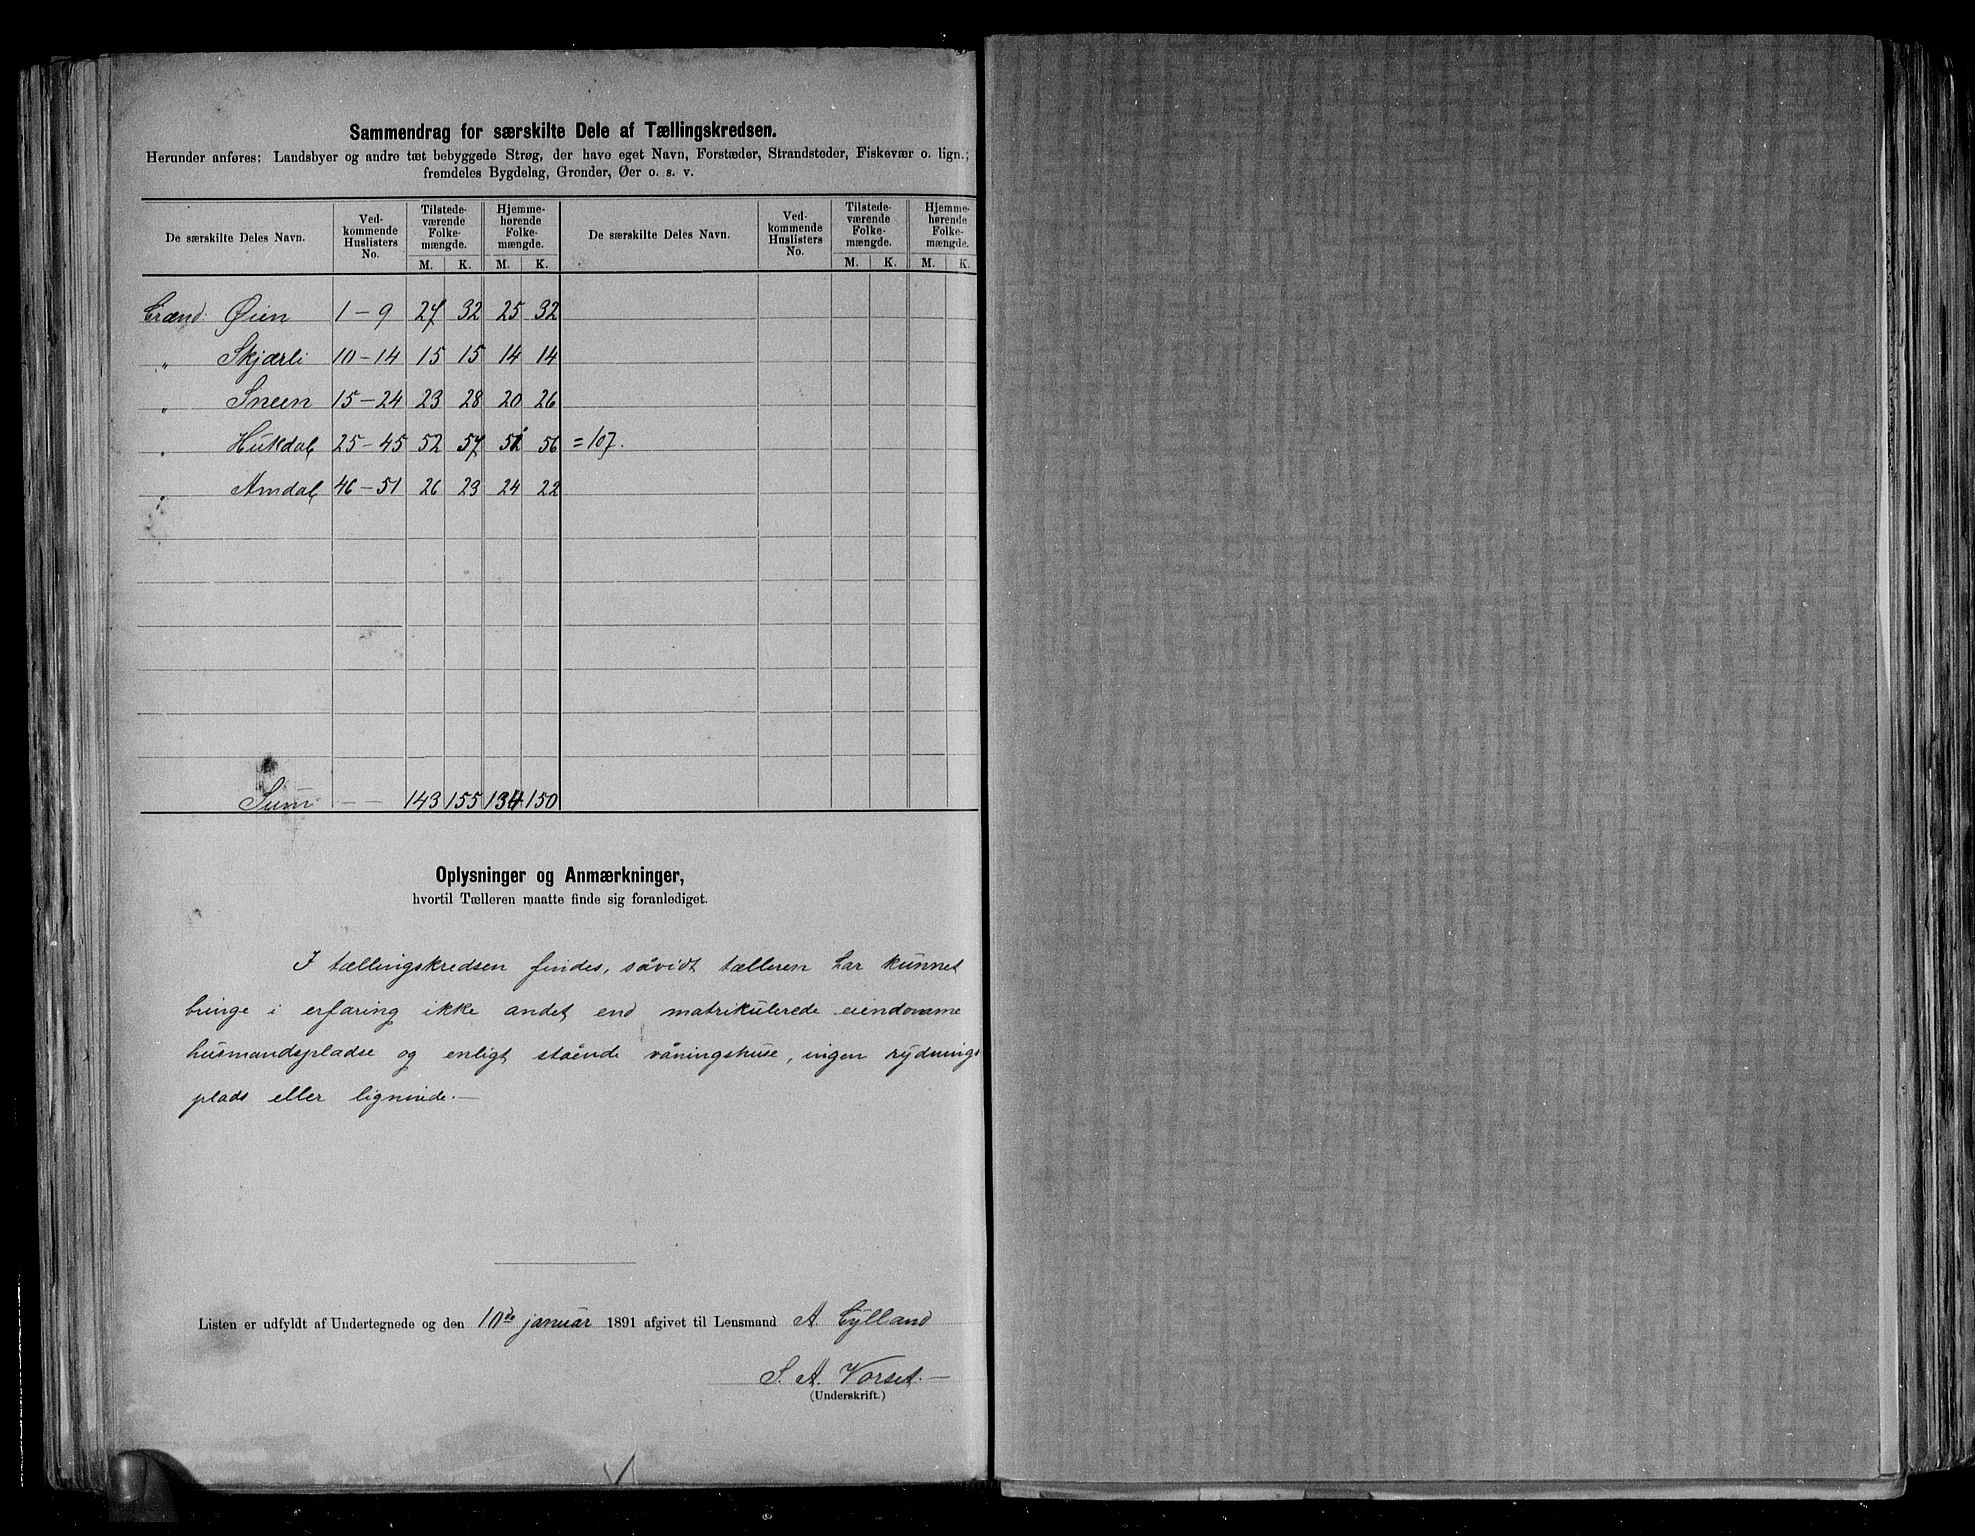 Sammendrag for særskilte Dele af Tællingskredsen.
Herunder anføres: Landsbyer og andre tæt bebyggede Strøg, der have eget Navn, Forstæder, Strandsteder, Fiskevær o. lign.;
fremdeles Bygdelag, Grender, Øer o. s. v.
De særskilte Deles Navn. Ved-kommende Huslisters No. Tilstede-værende Folke-mængde. Hjemme-hørende Folke-mængde. De særskilte Deles Navn. Ved-kommende Huslisters No. Tilstede-værende Folke-mængde. Hjemme-hørende Folke-mængde.
M. K. M. K. M. K. M. K.
Grænd: Øien 1-9 27 32 25 32
„ Skjærli 10-14 15 15 14 14
„ Sneen 15-24 23 28 20 26
„ Hukdal 25-45 52 57 51 56 =107.
„ Amdal 46-51 26 23 24 22
Sum - - 143 155 134 150
Oplysninger og Anmærkninger,
hvortil Tælleren maatte finde sig foranlediget.
I tællingskredsen findes, såvidt tælleren har kunnet
bringe i erfaring ikke andet end matrikulerede eiendomme
husmandspladse og enligt stående våningshuse, ingen rydnings-
plads eller lignende.—
Listen er udfyldt af Undertegnede og den 10de januar 1891 afgivet til Lensmand A Gylland
S. A. Vorset.—
(Underskrift.)